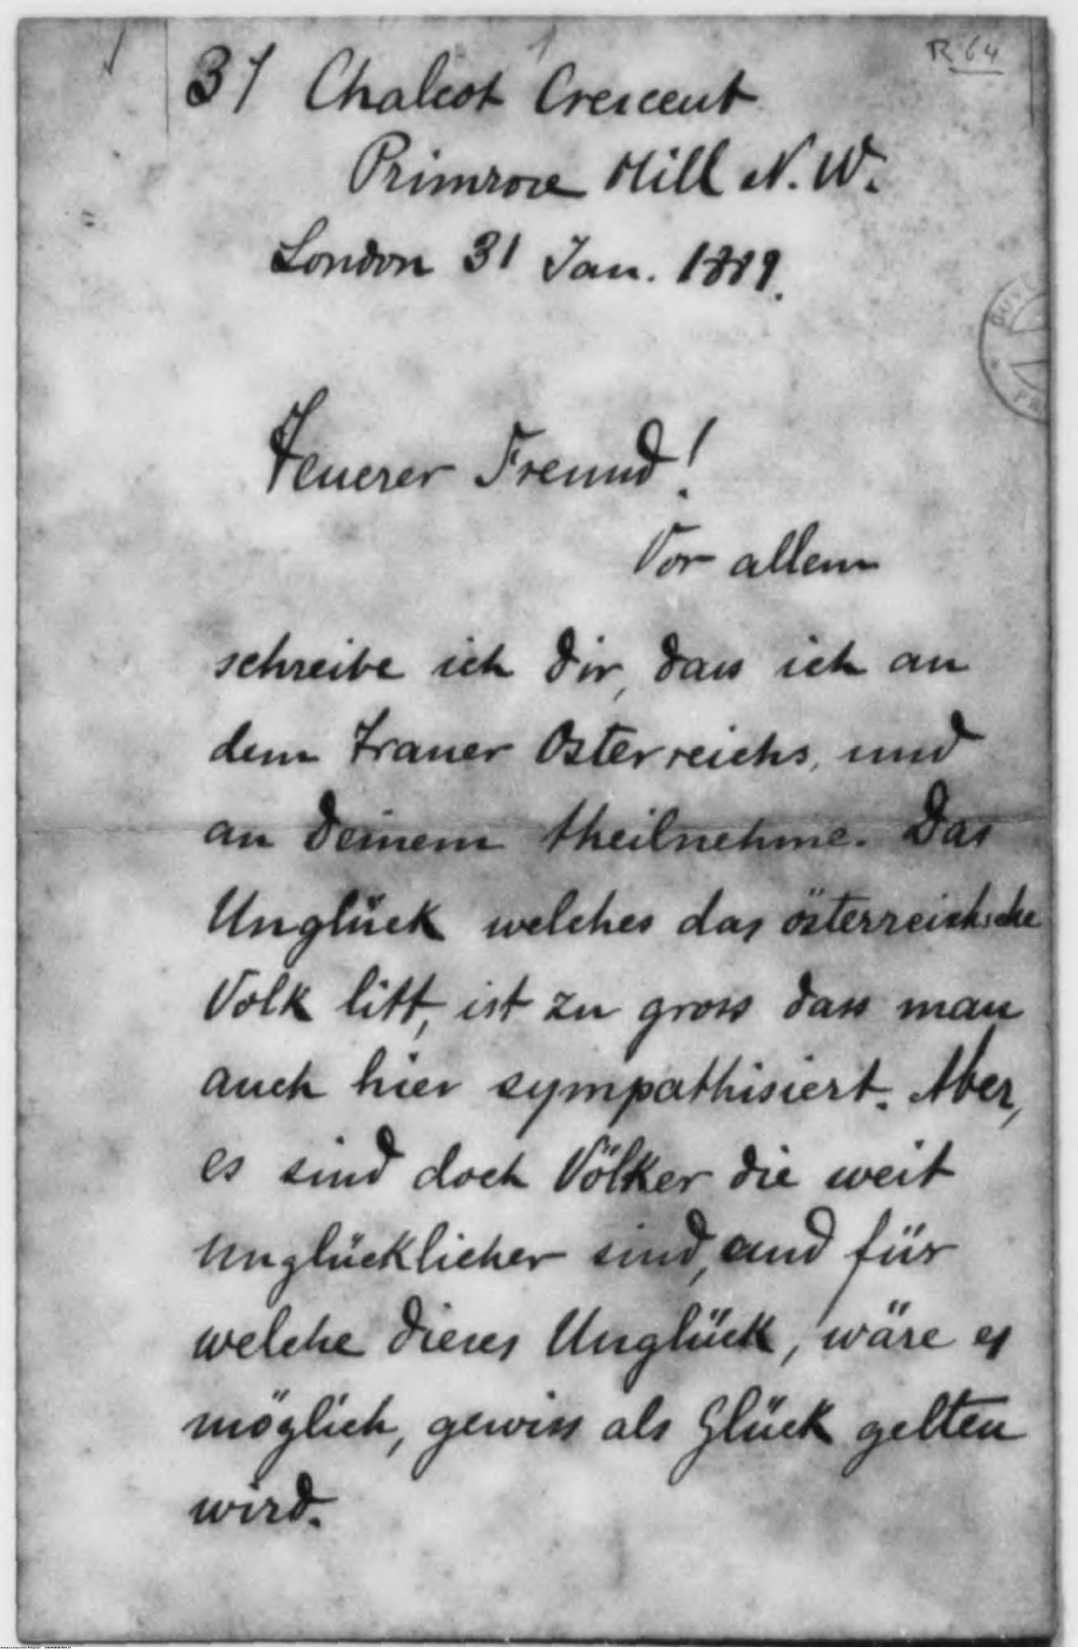 R 64
31 Chalcot Crescent
Primrose Hill N. W.
London 31 Jan. 1889.
Teuerer Freund!
Vor allem
schreibe ich Dir, dass ich an
dem Trauer Österreichs, und
an Deinem theilnehme. Das
Unglück welches das österreichische
Volk litt, ist zu gross dass man
auch hier sympathisiert. Aber,
es sind doch Völker die weit
Unglücklicher sind, und für
welche dieses Unglück, wäre es
möglich, gewiss als Glück gelten
wird.